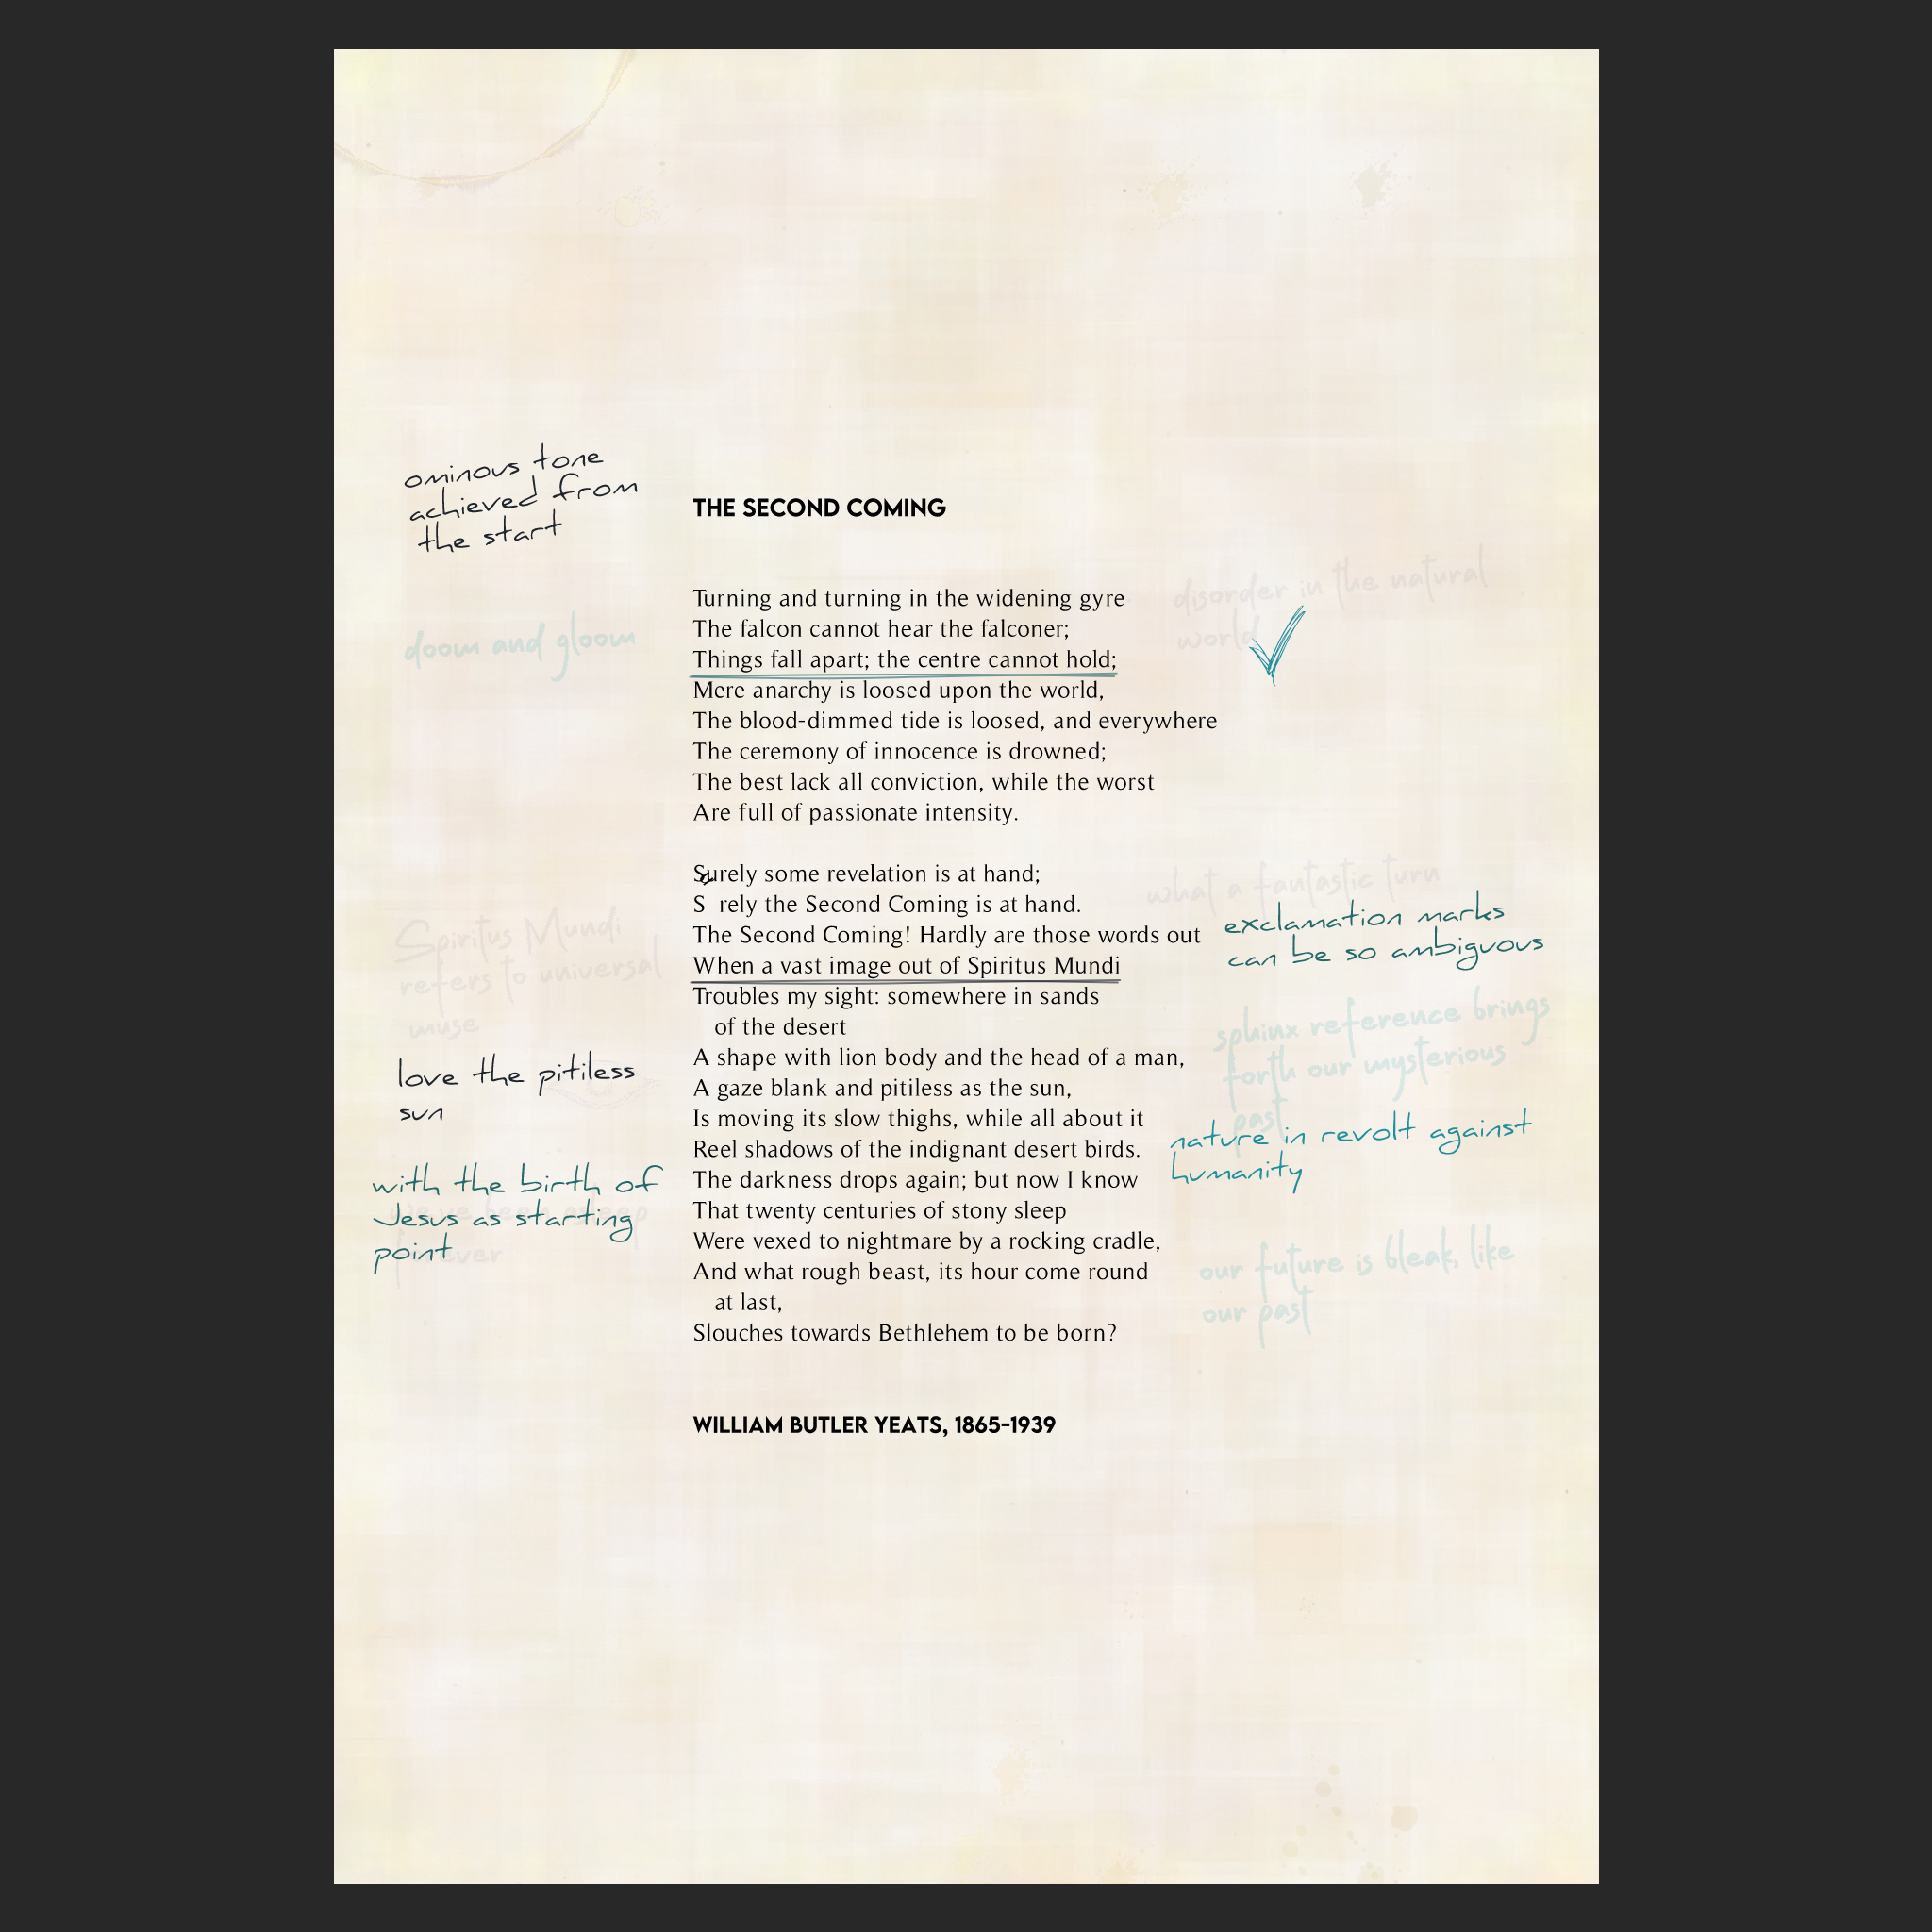 ominous tone
achieved from
the start
THE SECOND COMING
disorder in the natural
world
doom and gloom
Turning and turning in the widening gyre
The falcon cannot hear the falconer;
Things fall apart; the centre cannot hold;
Mere anarchy is loosed upon the world,
The blood-dimmed tide is loosed, and everywhere
The ceremony of innocence is drowned;
The best lack all conviction, while the worst
Are full of passionate intensity.
Surely some revelation is at hand;
S rely the Second Coming is at hand.
The Second Coming! Hardly are those words out
When a vast image out of Spiritus Mundi
Troubles my sight: somewhere in sands
of the desert
A shape with lion body and the head of a man,
A gaze blank and pitiless as the sun,
Is moving its slow thighs, while all about it
Reel shadows of the indignant desert birds.
The darkness drops again; but now I know
That twenty centuries of stony sleep
Were vexed to nightmare by a rocking cradle,
And what rough beast, its hour come round
at last,
Slouches towards Bethlehem to be born?
what a fantastic turn
exclamation marks
can be so ambiguous
Spiritus Mundi
refers to universal
muse
sphinx reference brings
forth our mysterious
past
love the pitiless
sun
nature in revolt against
humanity
with the birth of
Jesus as starting
point
asleep
our future is bleak, like
our past
WILLIAM BUTLER YEATS, 1865-1939